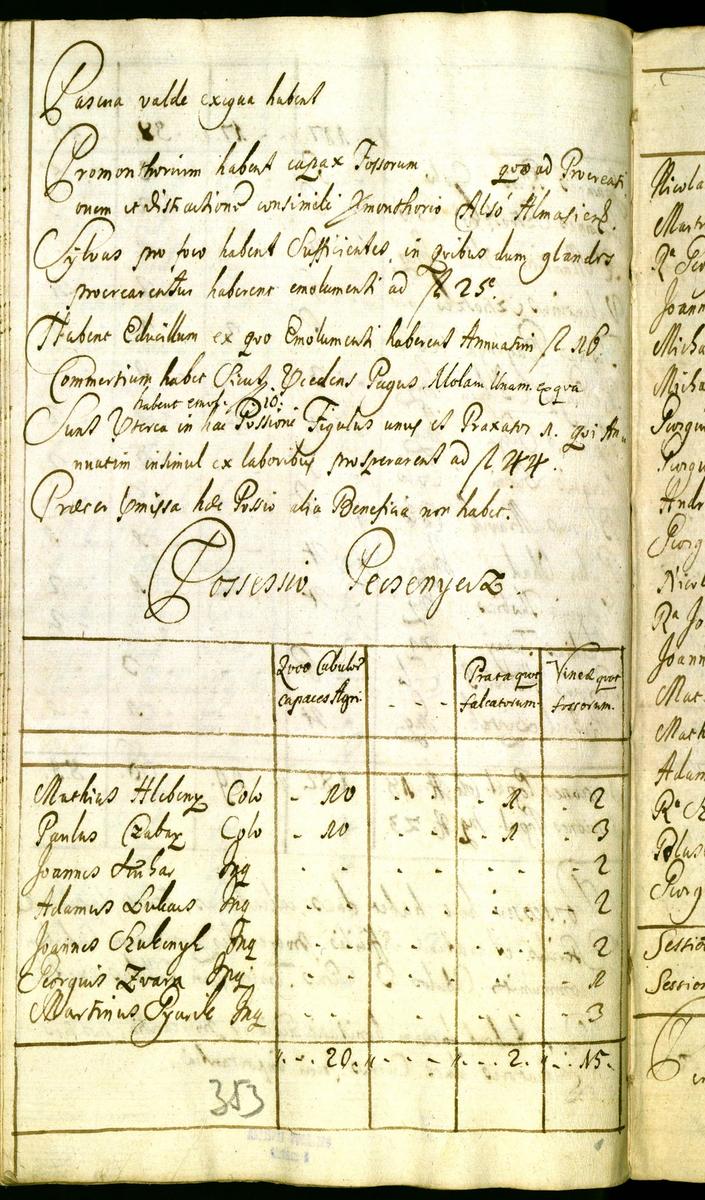 Pascua valde exigua habent
Promonthorium habent capax Fossorum quo ad Procreati
onem et distractionē consimili Pmonthorio Alsó Almasiens.
Sylvas pro foco habent Sufficientes, in quibus dum glandes
procrearentur haberent emolumenti ad fl 25.
Habent Educillum ex quo Emolumenti haberent Annuatim fl 16.
Commertium habet Sicut Pcedens Pagus. Molam unam. ex qua
habent emol. 10.
Sunt Pterea in hac Possione Figulus unus et Praxator 1. qui An
nuatim insimul ex laboribus prosperarent ad fl 44.
Præter Pmissa hæc Possio alia Beneficia non habet.
Possessio Pecsenyesz
Quot Cubulor capaces Agri - - - Prata quot falcatorum Vineæ quot fossorum
Mathias Hlebeny Colo - 10 - - - 1. - 2
Paulus Czabay Colo - 10 - - - 1 - 3
Joannes Inq - - - - - 2
Adamus Lukacs Inq - - - - - 2
Joannes Inq - - - - - 2
Georgius Zvara Inq - - - - - 1
Martinus Inq - - - - - 3
20. - - - 2. - 15.
353
Nicola
Mart
Ra Geo
Joann
Micha
Micha
Georgi
Georgi
Andr
Georg
Nicol
Ra Jo
Joann
Mat
Math
Adam
Ra
Blas
Georg
Sessio
Session